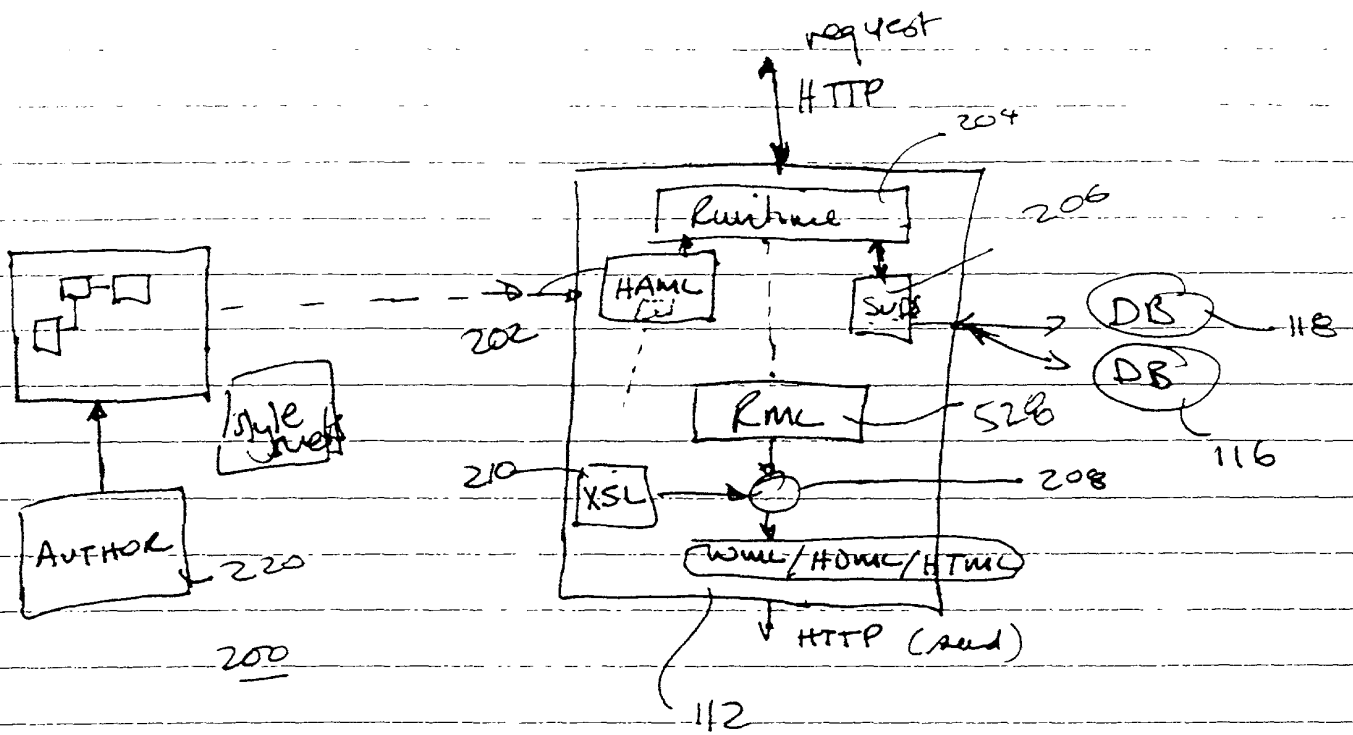 request
HTTP
204
Runtime
206
HAML
SVDS
DB
118
202
DB
Style
Sheets
RML
528
116
210
XSL
208
AUTHOR
220
WML/HDML/HTML
HTTP (send)
200
112